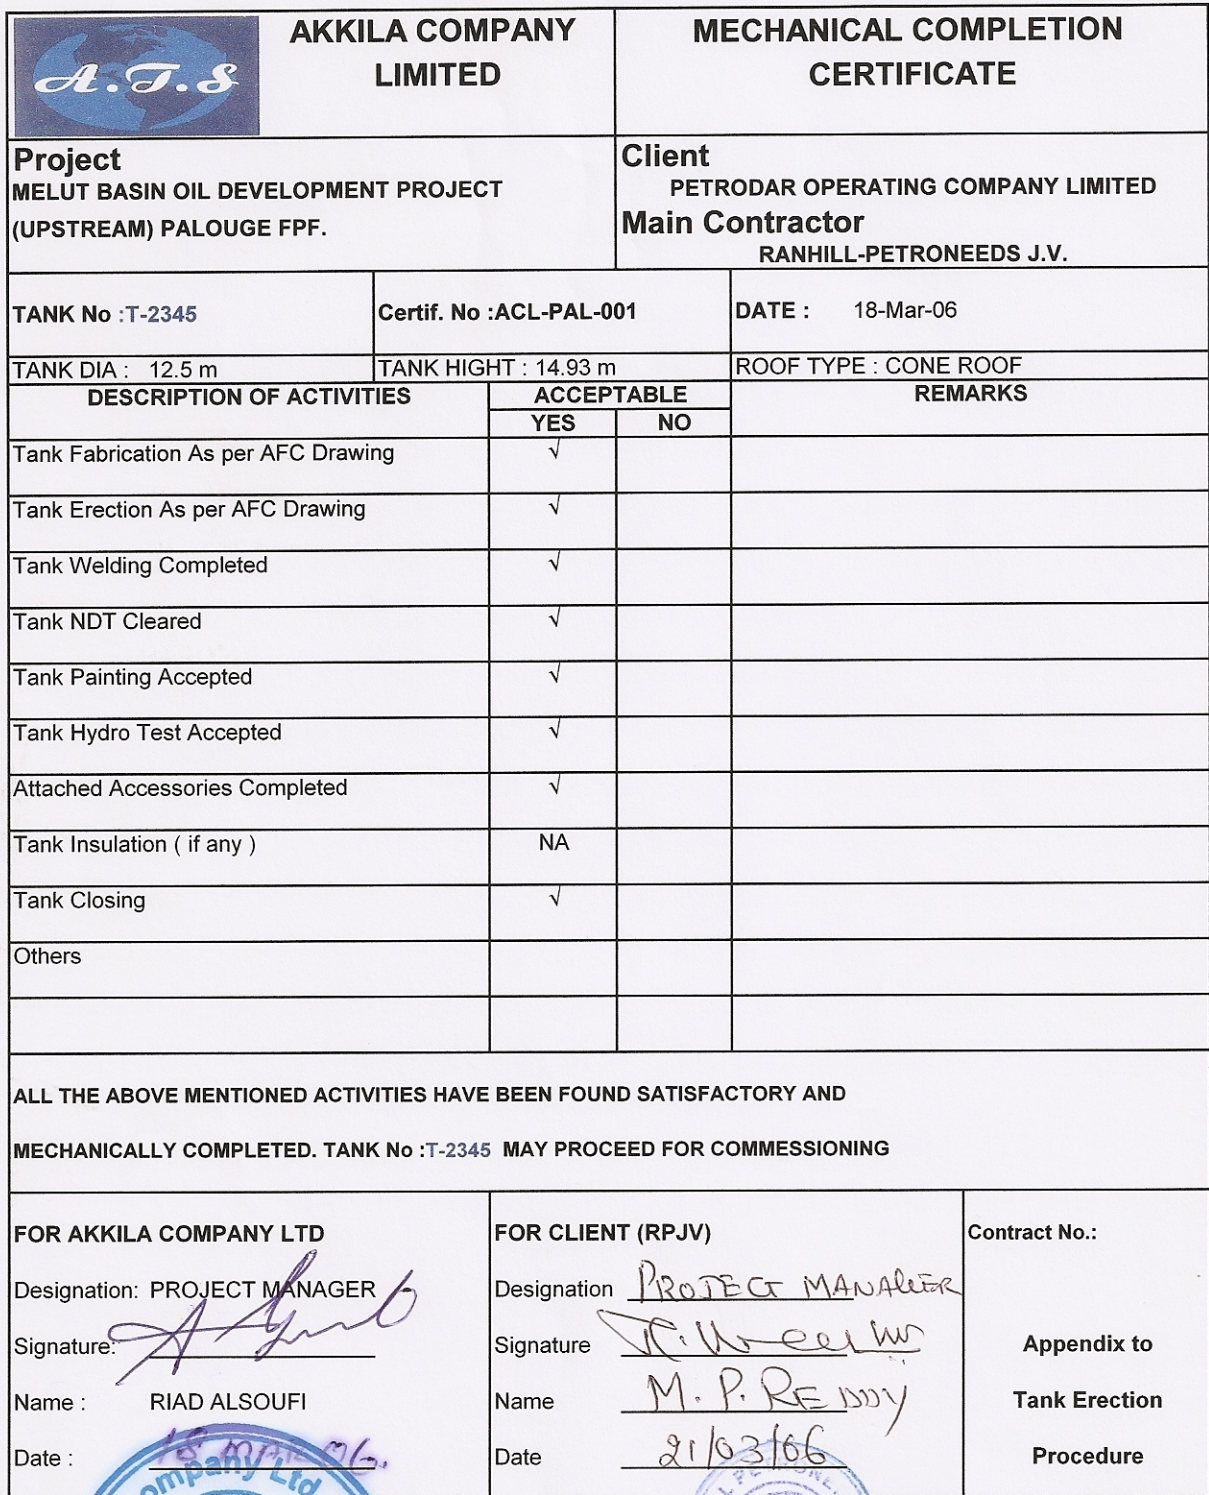 A.T.S
AKKILA COMPANY
LIMITED
MECHANICAL COMPLETION
CERTIFICATE
Project
MELUT BASIN OIL DEVELOPMENT PROJECT
(UPSTREAM) PALOUGE FPF.
Client
PETRODAR OPERATING COMPANY LIMITED
Main Contractor
RANHILL-PETRONEEDS J.V.
TANK No :T-2345
Certif. No :ACL-PAL-001
DATE : 18-Mar-06
TANK DIA : 12.5 m
TANK HIGHT : 14.93 m
ROOF TYPE : CONE ROOF
DESCRIPTION OF ACTIVITIES
ACCEPTABLE
REMARKS
YES NO
Tank Fabrication As per AFC Drawing √
Tank Erection As per AFC Drawing √
Tank Welding Completed √
Tank NDT Cleared √
Tank Painting Accepted √
Tank Hydro Test Accepted √
Attached Accessories Completed √
Tank Insulation ( if any ) NA
Tank Closing √
Others
ALL THE ABOVE MENTIONED ACTIVITIES HAVE BEEN FOUND SATISFACTORY AND
MECHANICALLY COMPLETED. TANK No :T-2345 MAY PROCEED FOR COMMESSIONING
FOR AKKILA COMPANY LTD
Designation: PROJECT MANAGER
Signature:
Name : RIAD ALSOUFI
Date : 18 MAR 06.
ompany Ltd
FOR CLIENT (RPJV)
Designation PROJECT MANAGER
Signature
Name M. P. REDDY
Date 21/03/06
Contract No.:
Appendix to
Tank Erection
Procedure